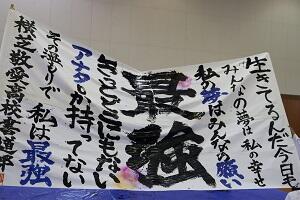 生きてるんだ今日も
みんなの夢は私の幸せ
私の夢はみんなの願い
最強
きっとどこにもない
アナタしか持ってない
その温もりで私は最強
桜之敷愛高校書道部